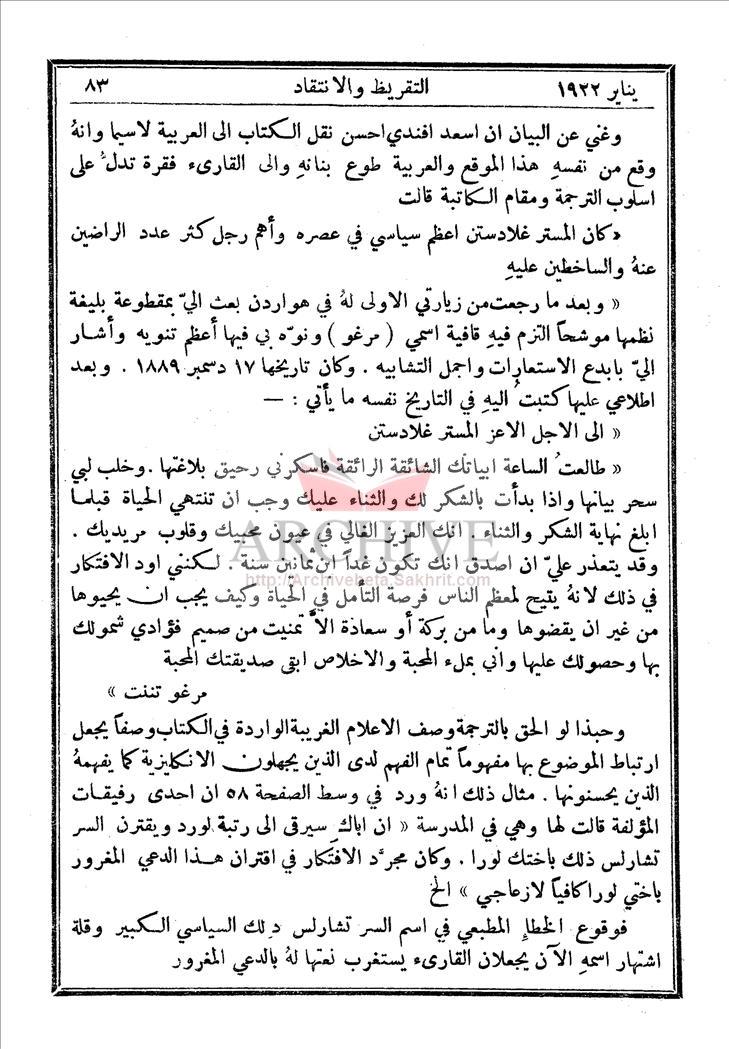 يناير ١٩٢٢ التقريظ والانتقاد ٨٣
وغني عن البيان ان اسعد افندي احسن نقل الكتاب الى العربية لاسيما وانهُ
وقع من نفسهِ هذا الموقع والعربية طوع بنانهِ والى القارىء فقرة تدلُّ على
اسلوب الترجمة ومقام الكاتبة قالت
«كان المستر غلادستن اعظم سياسي في عصره وأهم رجل كثر عدد الراضين
عنهُ والساخطين عليهِ
« وبعد ما رجعت من زيارتي الاولى لهُ في هواردن بعث اليّ بمقطوعة بليغة
نظمها موشحاً التزم فيهِ قافية اسمي ( مرغو ) ونوّه بي فيها أعظم تنويه وأشار
اليّ بابدع الاستعارات واجمل التشابيه . وكان تاريخها ١٧ دسمبر ١٨٨٩ . وبعد
اطلاعي عليها كتبتُ اليهِ في التاريخ نفسه ما يأتي : —
« الى الاجل الاعز المستر غلادستن
« طالعتُ الساعة ابياتك الشائقة الرائقة فاسكرني رحيق بلاغتها . وخلب لبي
سحر بيانها واذا بدأت بالشكر لك والثناء عليك وجب ان تنتهي الحياة قبلما
ابلغ نهاية الشكر والثناء . انك العزيز الغالي في عيون محبيك وقلوب مريديك .
وقد يتعذر عليّ ان اصدق انك تكون غداً ابن ثمانين سنة . لكنني اود الافتكار
في ذلك لانهُ يتيح لمعظم الناس فرصة التأمل في الحياة وكيف يجب ان يحيوها
من غير ان يقضوها وما من بركة أو سعادة الاَّ تمنيت من صميم فؤادي شمولك
بها وحصولك عليها واني بملء المحبة والاخلاص ابقى صديقتك المحبة
مرغو تننت »
وحبذا لو الحق بالترجمة وصف الاعلام الغريبة الواردة في الكتاب وصفاً يجعل
ارتباط الموضوع بها مفهوماً تمام الفهم لدى الذين يجهلون الانكليزية كما يفهمهُ
الذين يحسنونها . مثال ذلك انهُ ورد في وسط الصفحة ٥٨ ان احدى رفيقات
المؤلفة قالت لها وهي في المدرسة « ان اباكِ سيرقى الى رتبة لورد ويقترن السر
تشارلس ذلك باختك لورا . وكان مجرّد الافتكار في اقتران هذا الدعي المغرور
باختي لورا كافياً لازعاجي » الخ
فوقوع الخطاء المطبعي في اسم السر تشارلس دلك السياسي الكبير وقلة
اشتهار اسمهِ الآن يجعلان القارىء يستغرب نعتها لهُ بالدعي المغرور
ARCHIVE
http://Archivebeta.Sakhrit.com